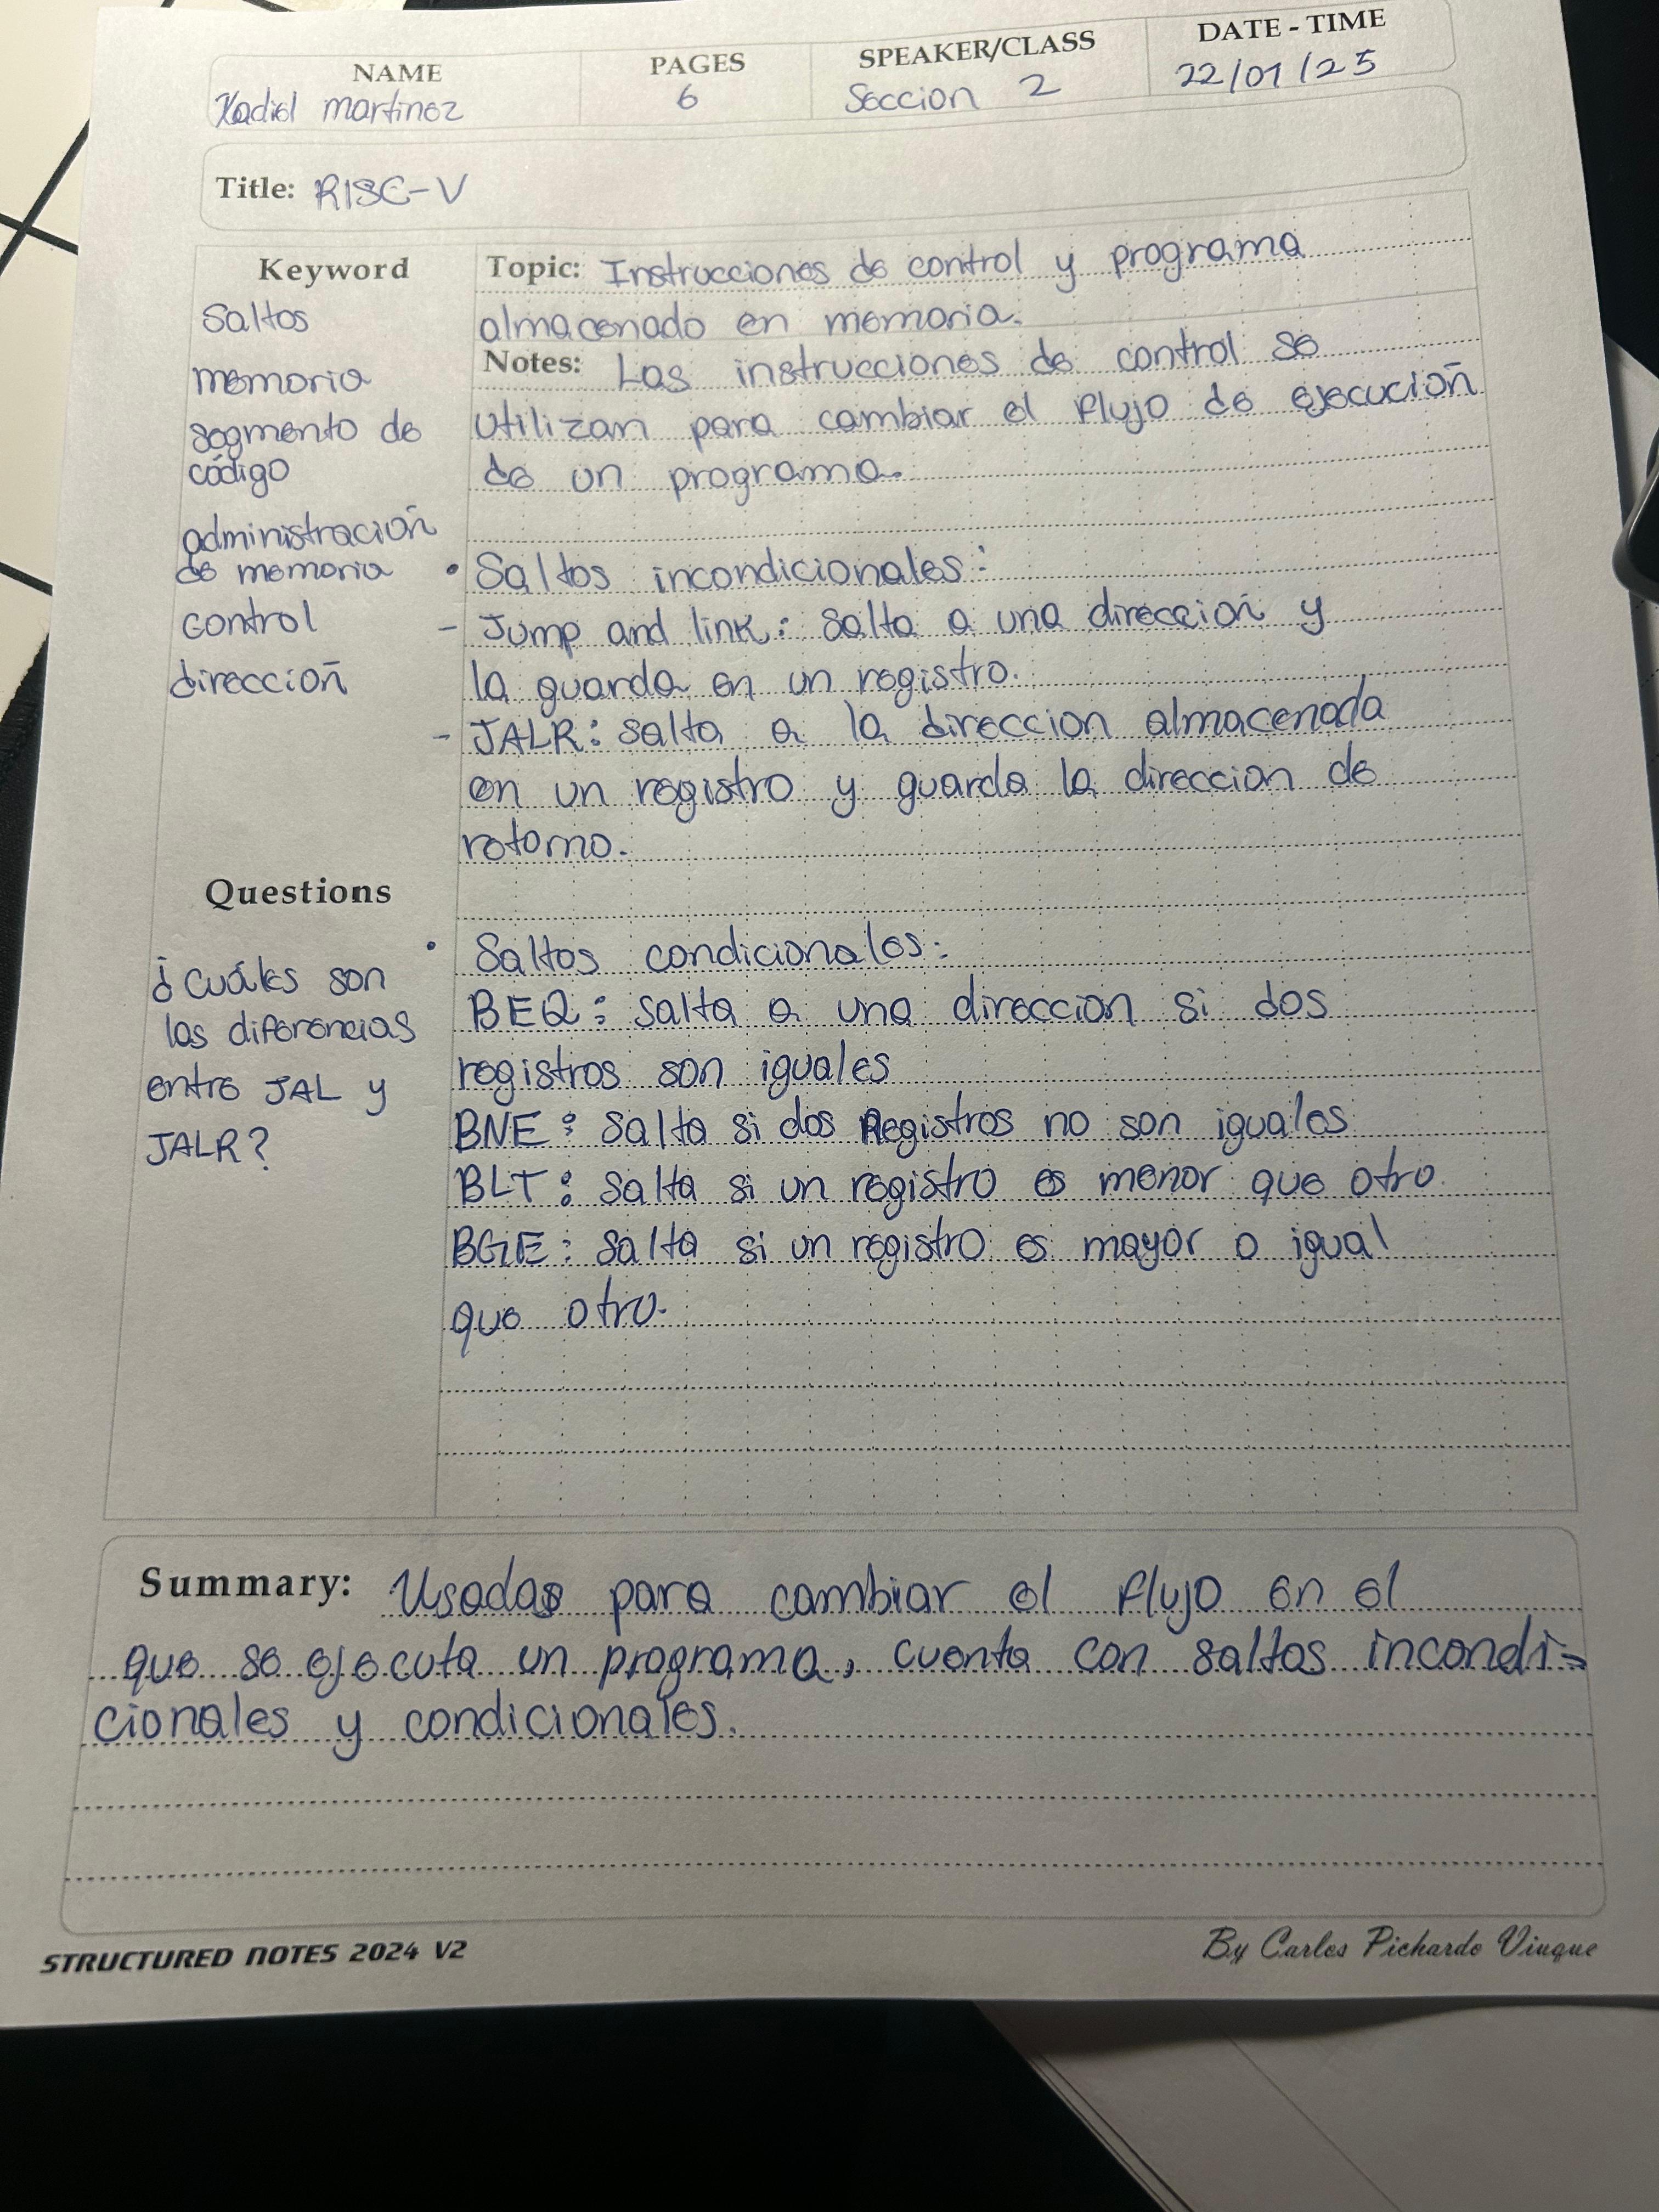 NAME
Xadiel martinez
PAGES
6
SPEAKER/CLASS
Seccion 2
DATE - TIME
22/01/25
Title: RISC-V
Keyword
Saltos
memoria
segmento de
código
administración
de memoria
control
dirección
Questions
¿Cuáles son
las diferencias
entre JAL y
JALR?
Topic: Instrucciones de control y programa
almacenado en memoria.
Notes: Las instrucciones de control se
utilizan para cambiar el flujo de ejecución
de un programa.
• Saltos incondicionales:
- Jump and link: salta a una direccion y
la guarda en un registro.
- JALR: salta a la direccion almacenada
en un registro y guarda la direccion de
retorno.
• Saltos condicionales:
BEQ: salta a una direccion si dos
registros son iguales
BNE: Salta si dos Registros no son iguales
BLT: Salta si un registro es menor que otro.
BGE: Salta si un registro es mayor o igual
que otro.
Summary: Usadas para cambiar el flujo en el
que se ejecuta un programa, cuenta con saltos incondi-
cionales y condicionales.
STRUCTURED NOTES 2024 V2
By Carlos Pichardo Viuque